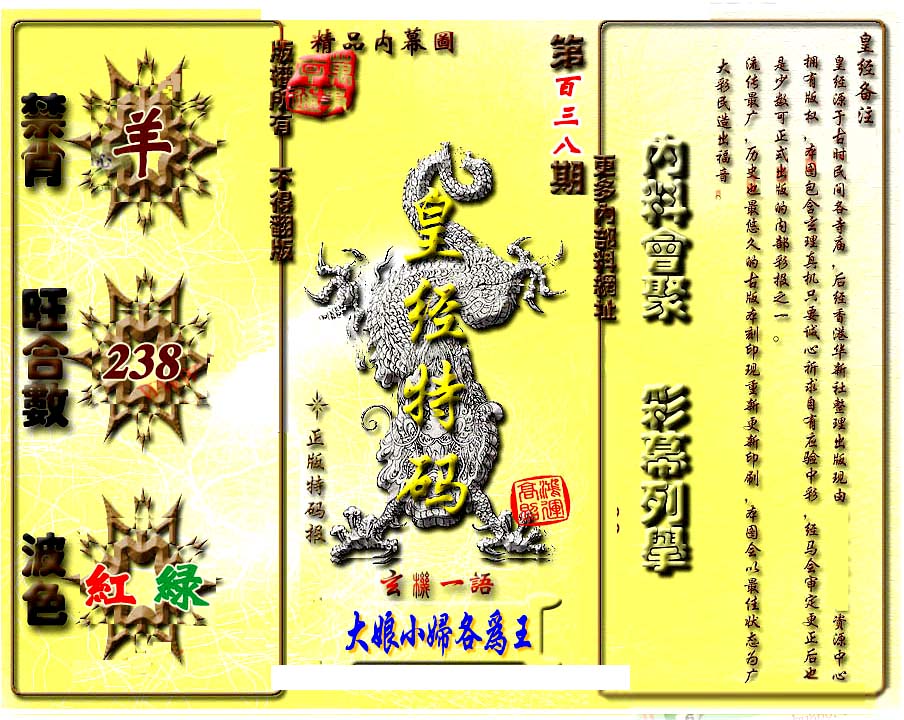 精品內幕圖
版權所有 不得翻版
第百三八期
更多內部料網址
禁肖
羊
旺合數
238
波色
紅 綠
皇经特码
正版特码报
鴻運高照
玄機一語
大娘小婦各爲王
內料會聚 彩幕列學
皇经备注
皇经源于古时民间各寺庙,后经香港华新社整理出版现由 資源中心
拥有版权,本图包含玄理真机只要诚心祈求自有应验中彩,经马会审定更正后也
是少数可正式出版的内部彩报之一。
流传最广,历史也最悠久的古版本刻印现重新更新印刷,本图会以最佳状态为广
大彩民造出福音